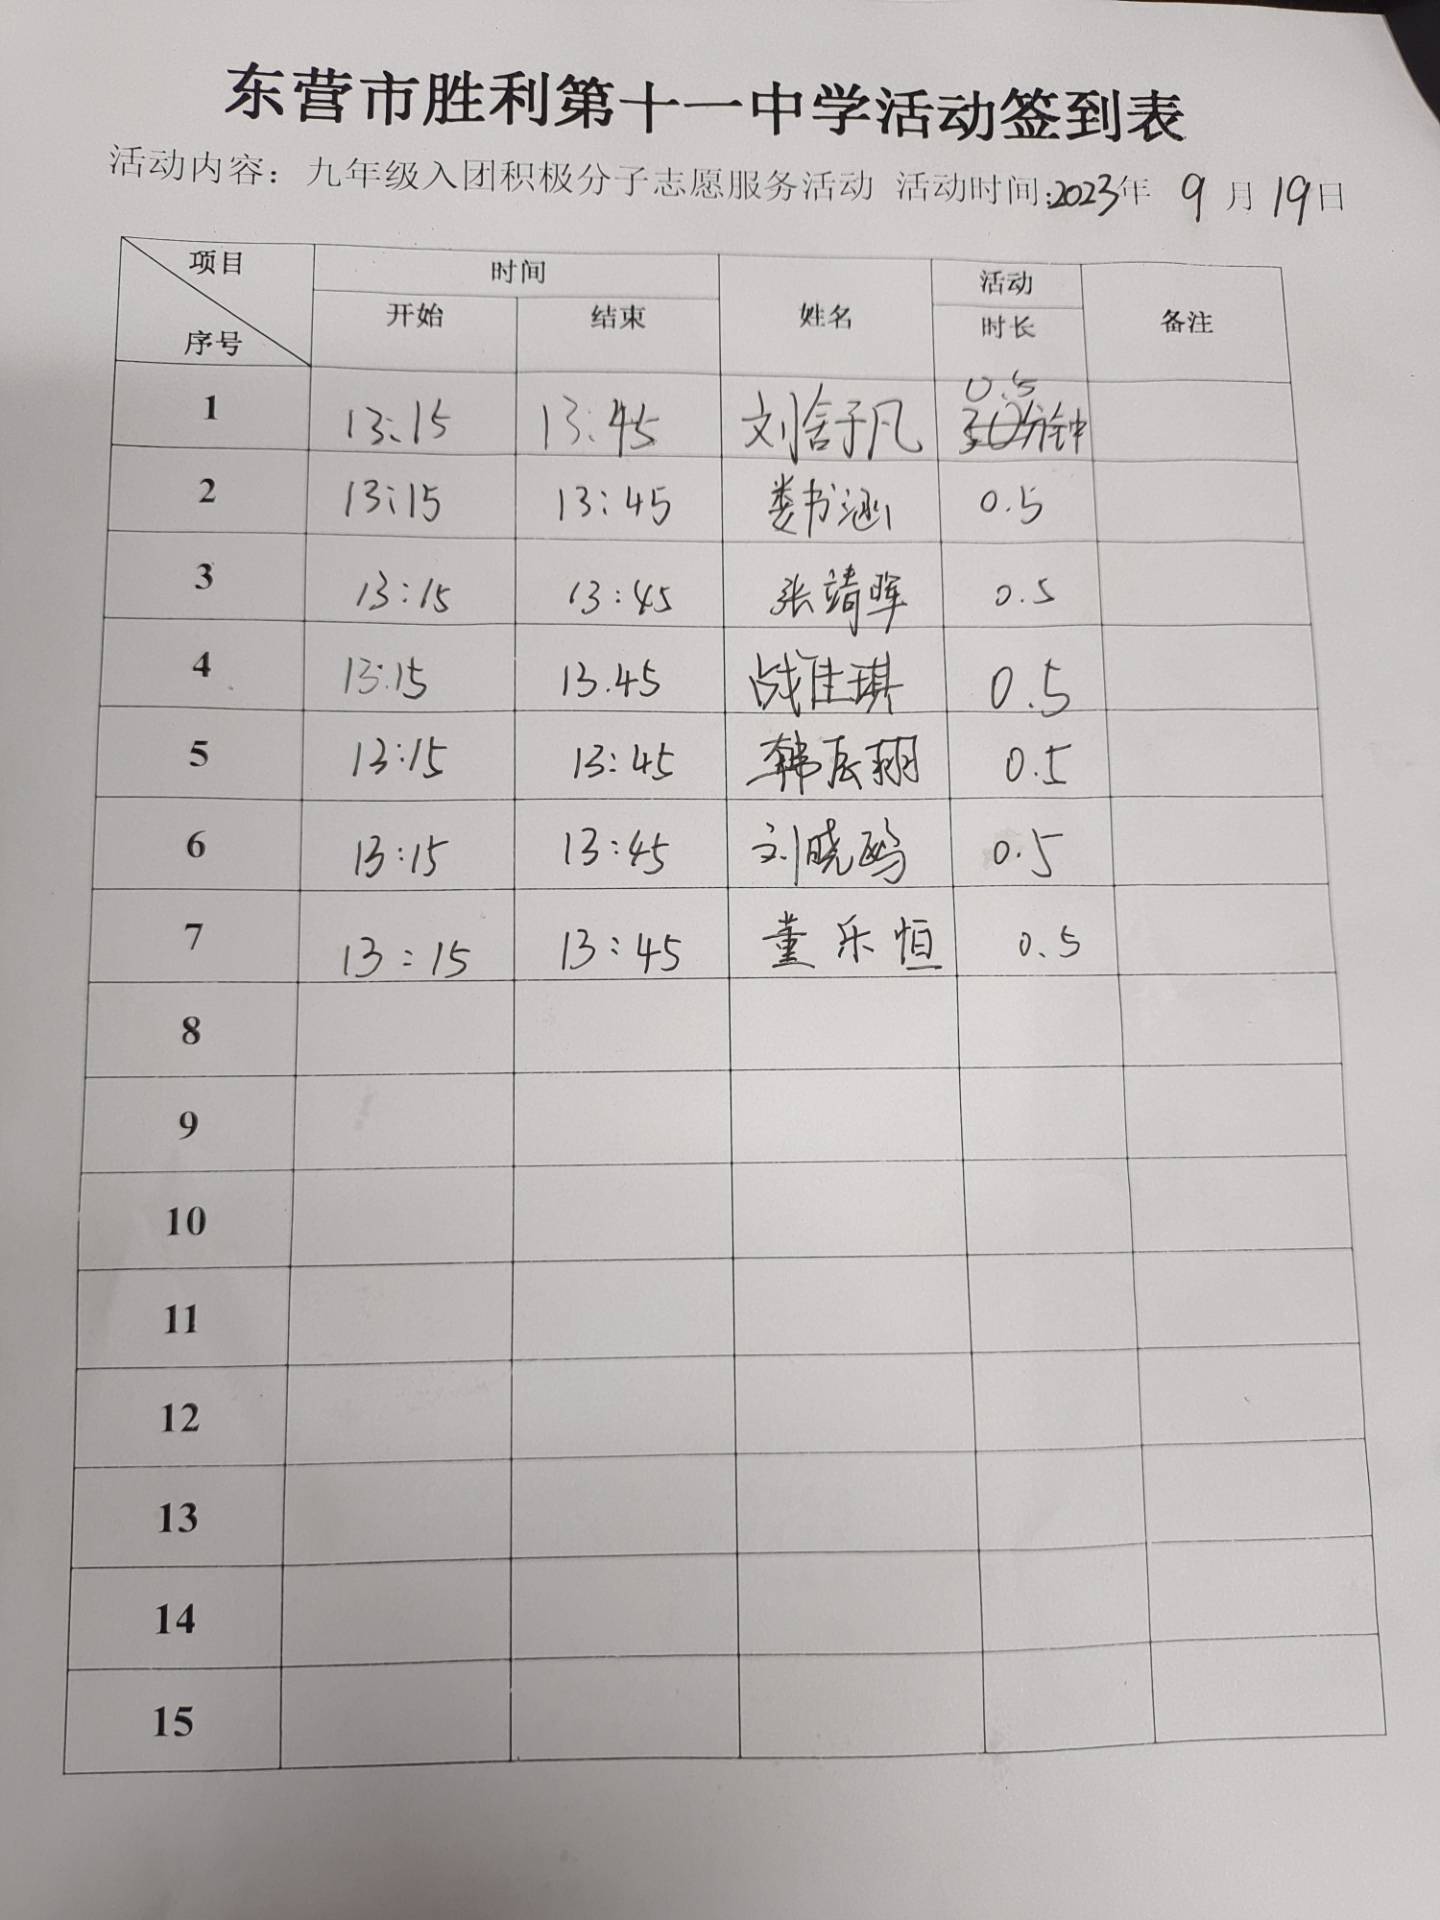 东营市胜利第十一中学活动签到表
活动内容：九年级入团积极分子志愿服务活动 活动时间:2023年 9 月 19日
项目 时间 姓名 活动 备注
序号 开始 结束 时长
0.5
1 13:15 13:45 刘舒凡 30分钟
2 13:15 13:45 娄书涵 0.5
3 13:15 13:45 张靖晖 0.5
4 13:15 13.45 战佳琪 0.5
5 13:15 13:45 韩辰翔 0.5
6 13:15 13:45 刘晓鸥 0.5
7 13:15 13:45 董乐恒 0.5
8
9
10
11
12
13
14
15